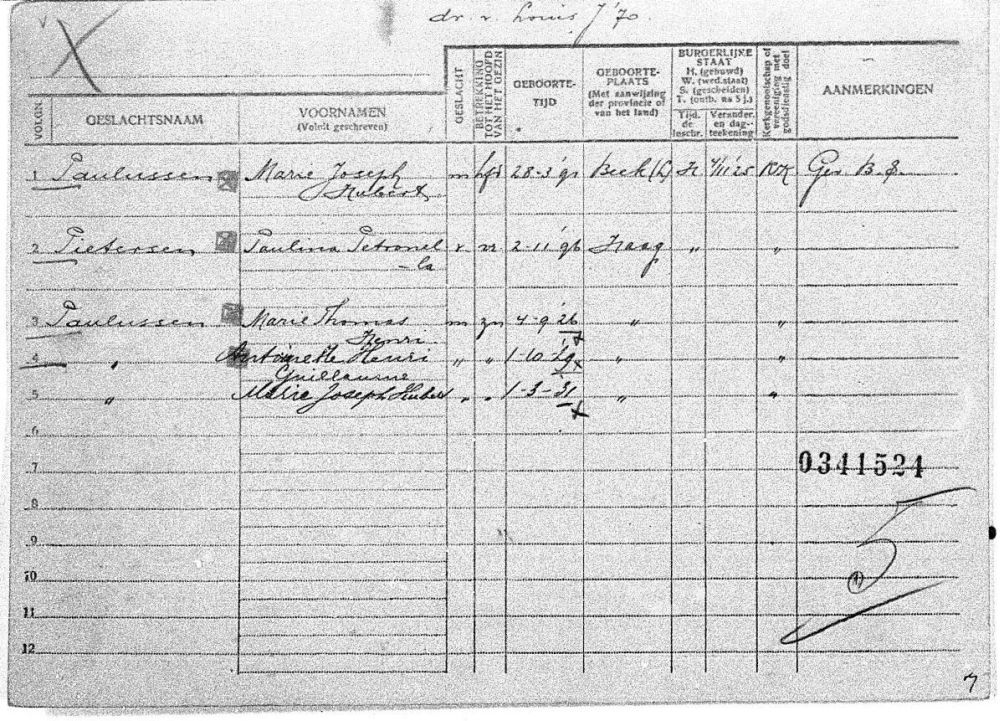 dr. v. Louis J '70.
VOLGN. GESLACHTSNAAM VOORNAMEN (Voluit geschreven) GESLACHT BETREKKING TOT HET HOOFD VAN HET GEZIN GEBOORTE-TIJD GEBOORTE-PLAATS (Met aanwijzing der provincie of van het land) BURGERLIJKE STAAT H. (gehuwd) W. (wed.staat) S. (gescheiden) T. (ontb. na 5 j.) Tijd. de inschr. Verander. en dag-teekening Kerkgenootschap of vereeniging met godsdienstig doel AANMERKINGEN
1 Paulussen Marie Joseph m hfd 28-3-'91 Beek (L) H 7/11'25 RK Ger. B. S.
Hubert
2 Pietersen Paulina Petronel v vr 2-11-'96 Haag " "
-la
3 Paulussen Marie Thomas m zn 4-9-'26 " "
Henri
4 " Antoinette Henri " " 1-10-'29 " "
Guillaume
5 " Marie Joseph Hubert " " 1-3-31 " "
6
7 0341524
8
9 5
10 (1)
11
12
7